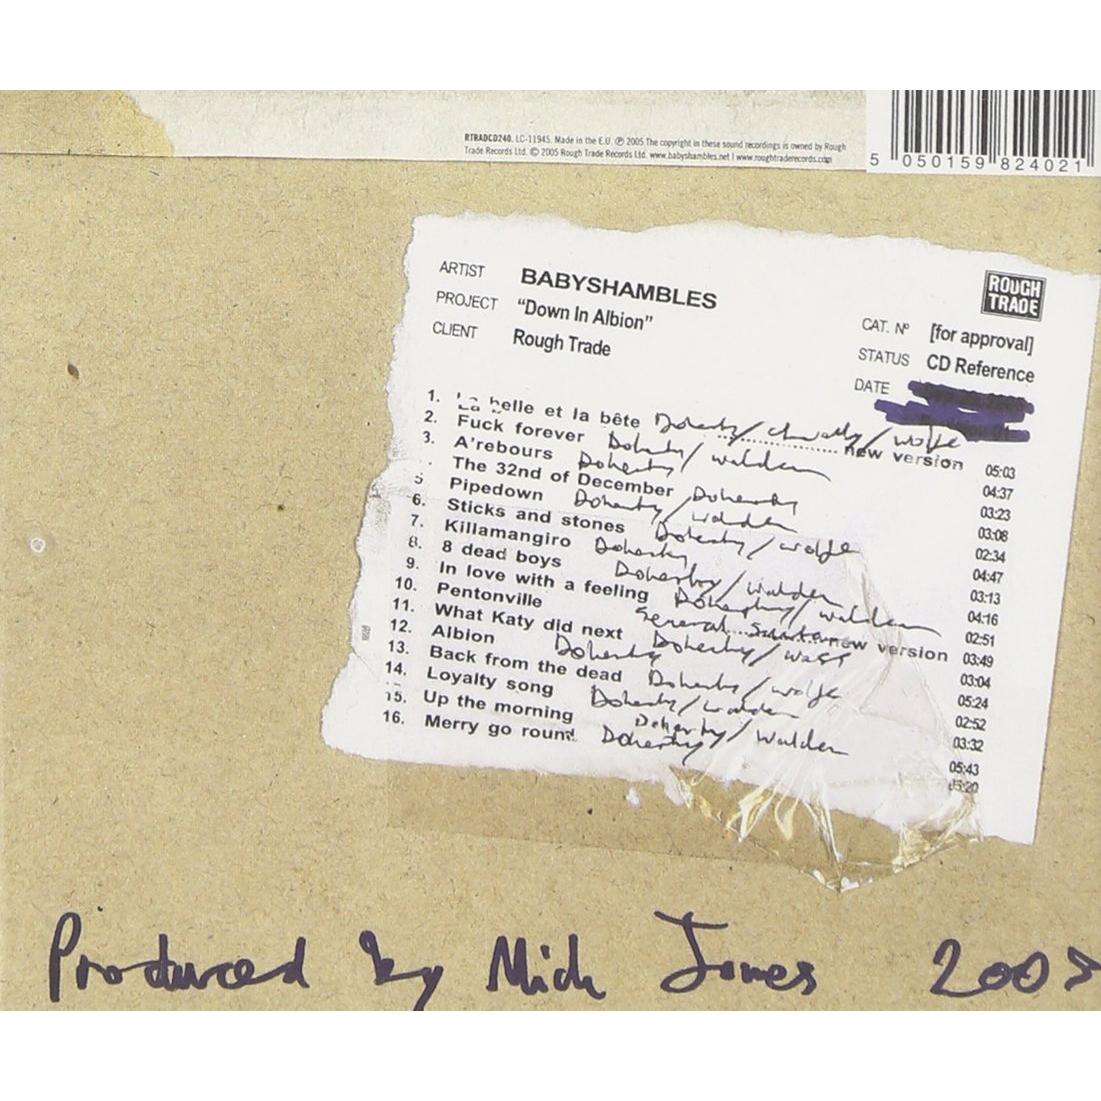 RTRADCD240. LC-11945. Made in the E.U. ℗ 2005 The copyright in these sound recordings is owned by Rough
Trade Records Ltd. © 2005 Rough Trade Records Ltd. www.babyshambles.net | www.roughtraderecords.com
5 050159 824021
ARTIST BABYSHAMBLES
PROJECT "Down In Albion"
CLIENT Rough Trade
ROUGH
TRADE
CAT. Nº [for approval]
STATUS CD Reference
DATE
1. La belle et la bête Doherty/Chevalley/Wolfe new version 05:03
2. Fuck forever Doherty/Walden 04:37
3. A'rebours Doherty/Walden 03:23
The 32nd of December Doherty 03:08
5 Pipedown Doherty/Walden 02:34
6. Sticks and stones Doherty/Wolfe 04:47
7. Killamangiro Doherty 03:13
8. 8 dead boys Doherty/Walden 04:16
9. In love with a feeling Doherty/Walden 02:51
10. Pentonville General new version 03:49
11. What Katy did next Doherty/Wass 03:04
12. Albion Doherty 05:24
13. Back from the dead Doherty/Wolfe 02:52
14. Loyalty song Doherty/Walden 03:32
15. Up the morning Doherty 05:43
16. Merry go round Doherty/Walden 05:20
Produced by Mick Jones 2005